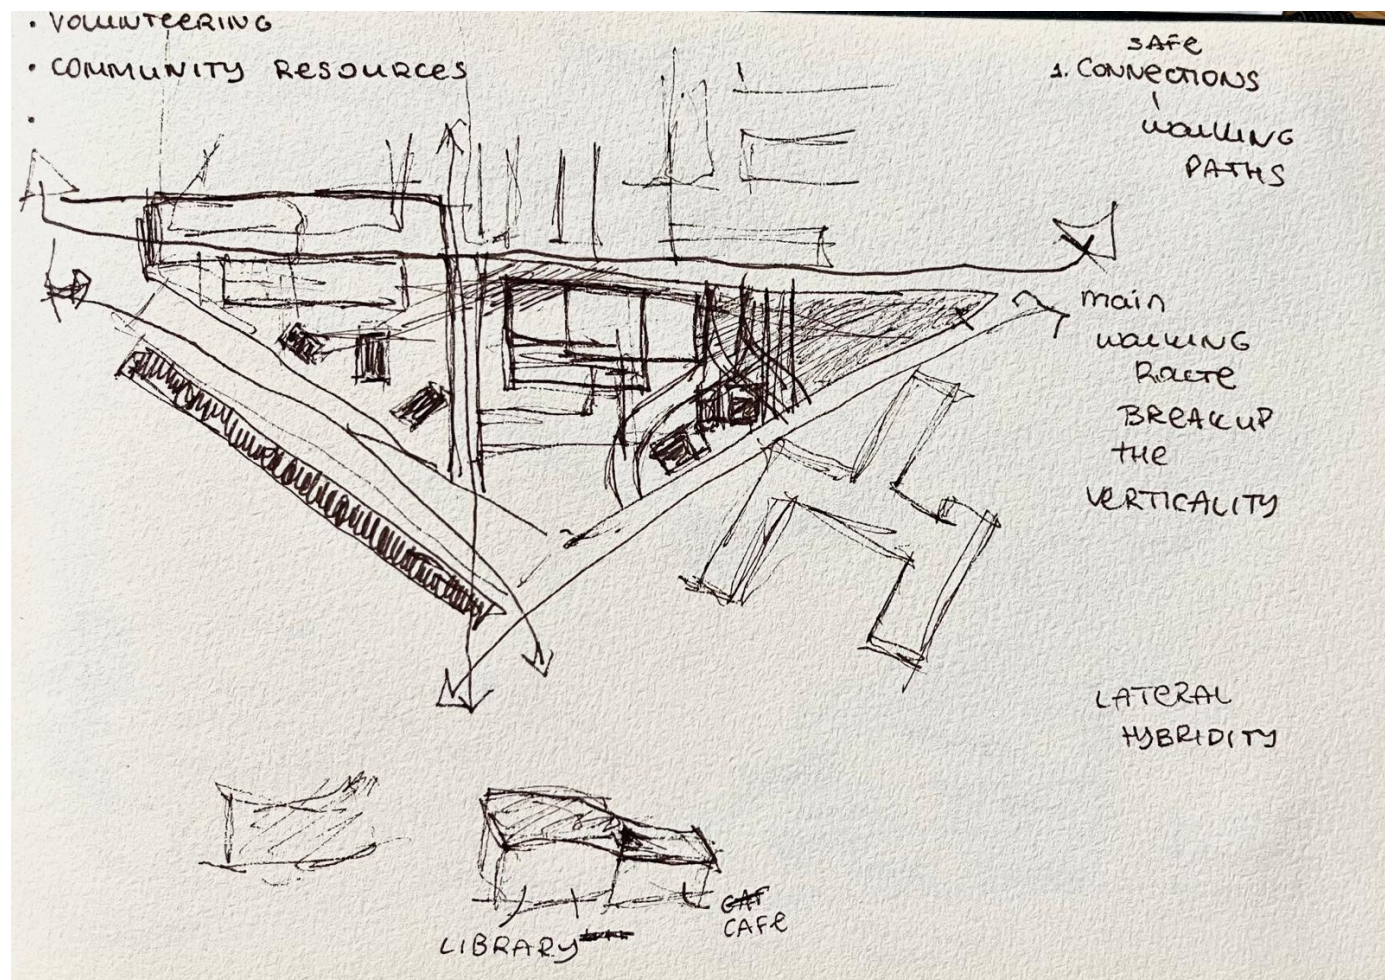 • VOLUNTEERING
• COMMUNITY RESOURCES
•
SAFE
1. CONNECTIONS
WALKING
PATHS
main
WALKING
ROUTE
BREAKUP
THE
VERTICALITY
LATERAL
HYBRIDITY
CAF
CAFE
LIBRARY